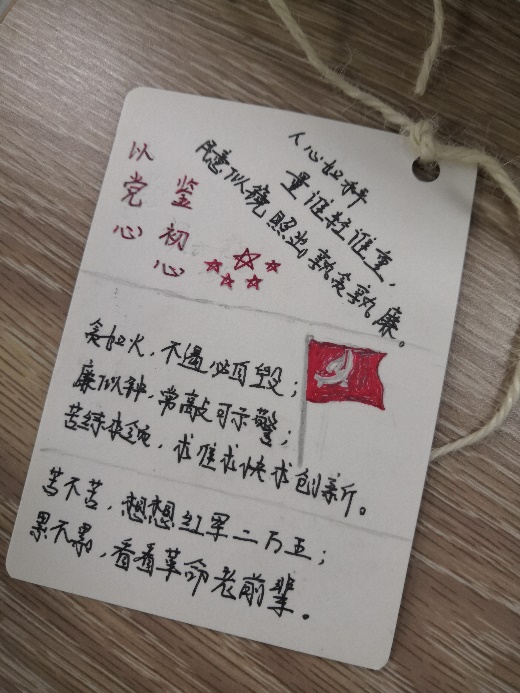 以党心
鉴初心
人心如秤
量谁轻谁重，
民意似镜照出孰贪孰廉。
贪如火，不遏必自毁；
廉似钟，常敲可示警；
苦练本领，求准求快求创新。
苦不苦，想想红军二万五；
累不累，看看革命老前辈。